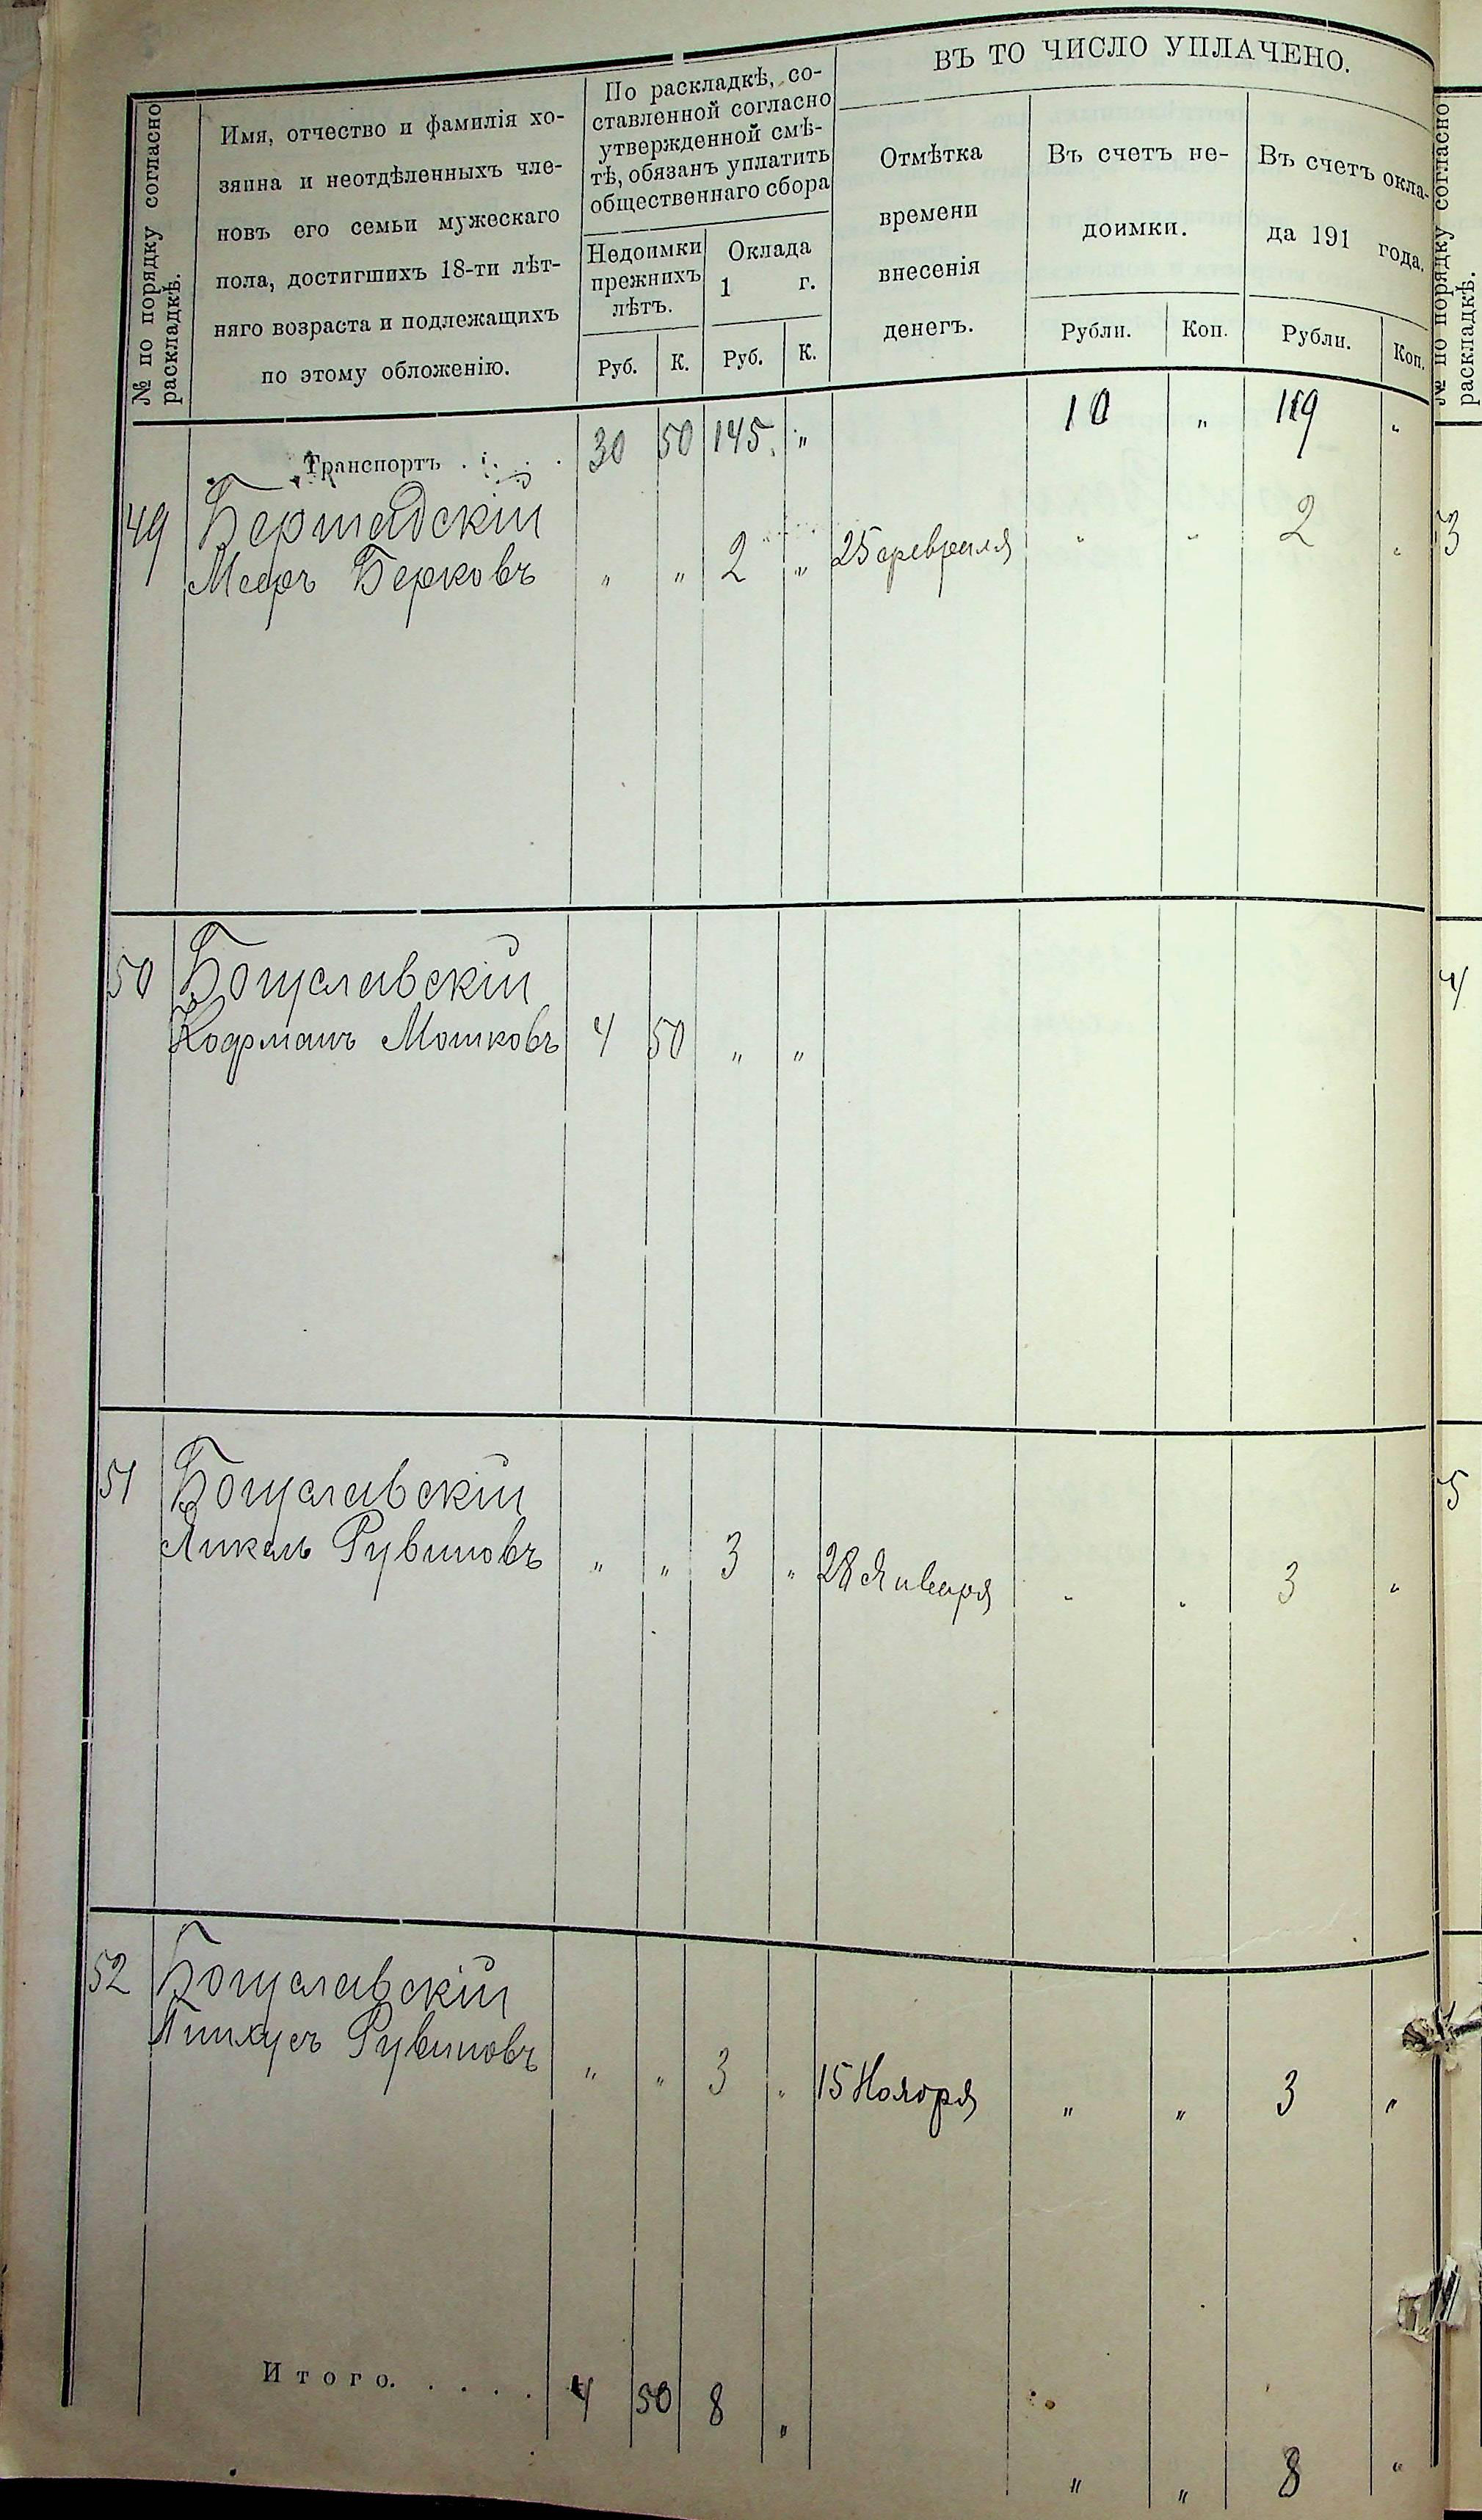 № по порядку согласно
раскладкѣ.
Имя, отчество и фамилія хо-
зяина и неотдѣленныхъ чле-
новъ его семьи мужескаго
пола, достигшихъ 18-ти лѣт-
няго возраста и подлежащихъ
по этому обложенію.
По раскладкѣ, со-
ставленной согласно
утвержденной смѣ-
тѣ, обязанъ уплатить
общественнаго сбора
Недоимки
прежнихъ
лѣтъ.
Оклада
1 г.
Руб. К. Руб. К.
ВЪ ТО ЧИСЛО УПЛАЧЕНО.
Отмѣтка
времени
внесенія
денегъ.
Въ счетъ не-
доимки.
Въ счетъ окла-
да 191 года.
Рубли. Коп. Рубли. Коп.
Транспортъ . . . . 30 50 145 „ 10 „ 119 „
49 Бершадскій
Мееръ Берковъ „ „ 2 „ 25 февраля „ „ 2 „
50 Богуславскій
Кофманъ Мошковъ 4 50 „ „
51 Богуславскій
Рувиновъ „ „ 3 „ 28 Января „ „ 3 „
52 Богуславскій
Пинхусъ Рувиновъ „ „ 3 „ 15 Ноября „ „ 3 „
Итого. . . . . 4 50 8 „
„ „ 8 „
№ по порядку согласно
раскладкѣ.
3
4
5